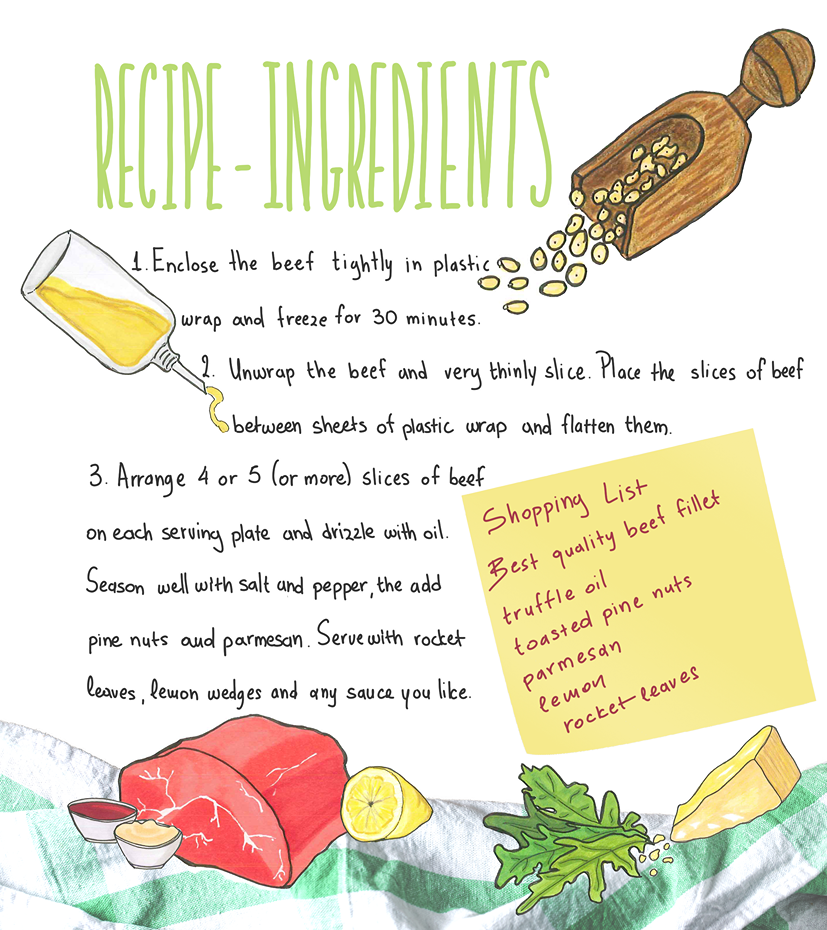 RECIPE-INGREDIENTS
1. Enclose the beef tightly in plastic
wrap and freeze for 30 minutes.
2. Unwrap the beef and very thinly slice. Place the slices of beef
between sheets of plastic wrap and flatten them.
3. Arrange 4 or 5 (or more) slices of beef
on each serving plate and drizzle with oil.
Season well with salt and pepper, the add
pine nuts and parmesan. Serve with rocket
leaves, lemon wedges and any sauce you like.
Shopping List
Best quality beef fillet
truffle oil
toasted pine nuts
parmesan
lemon
rocket leaves